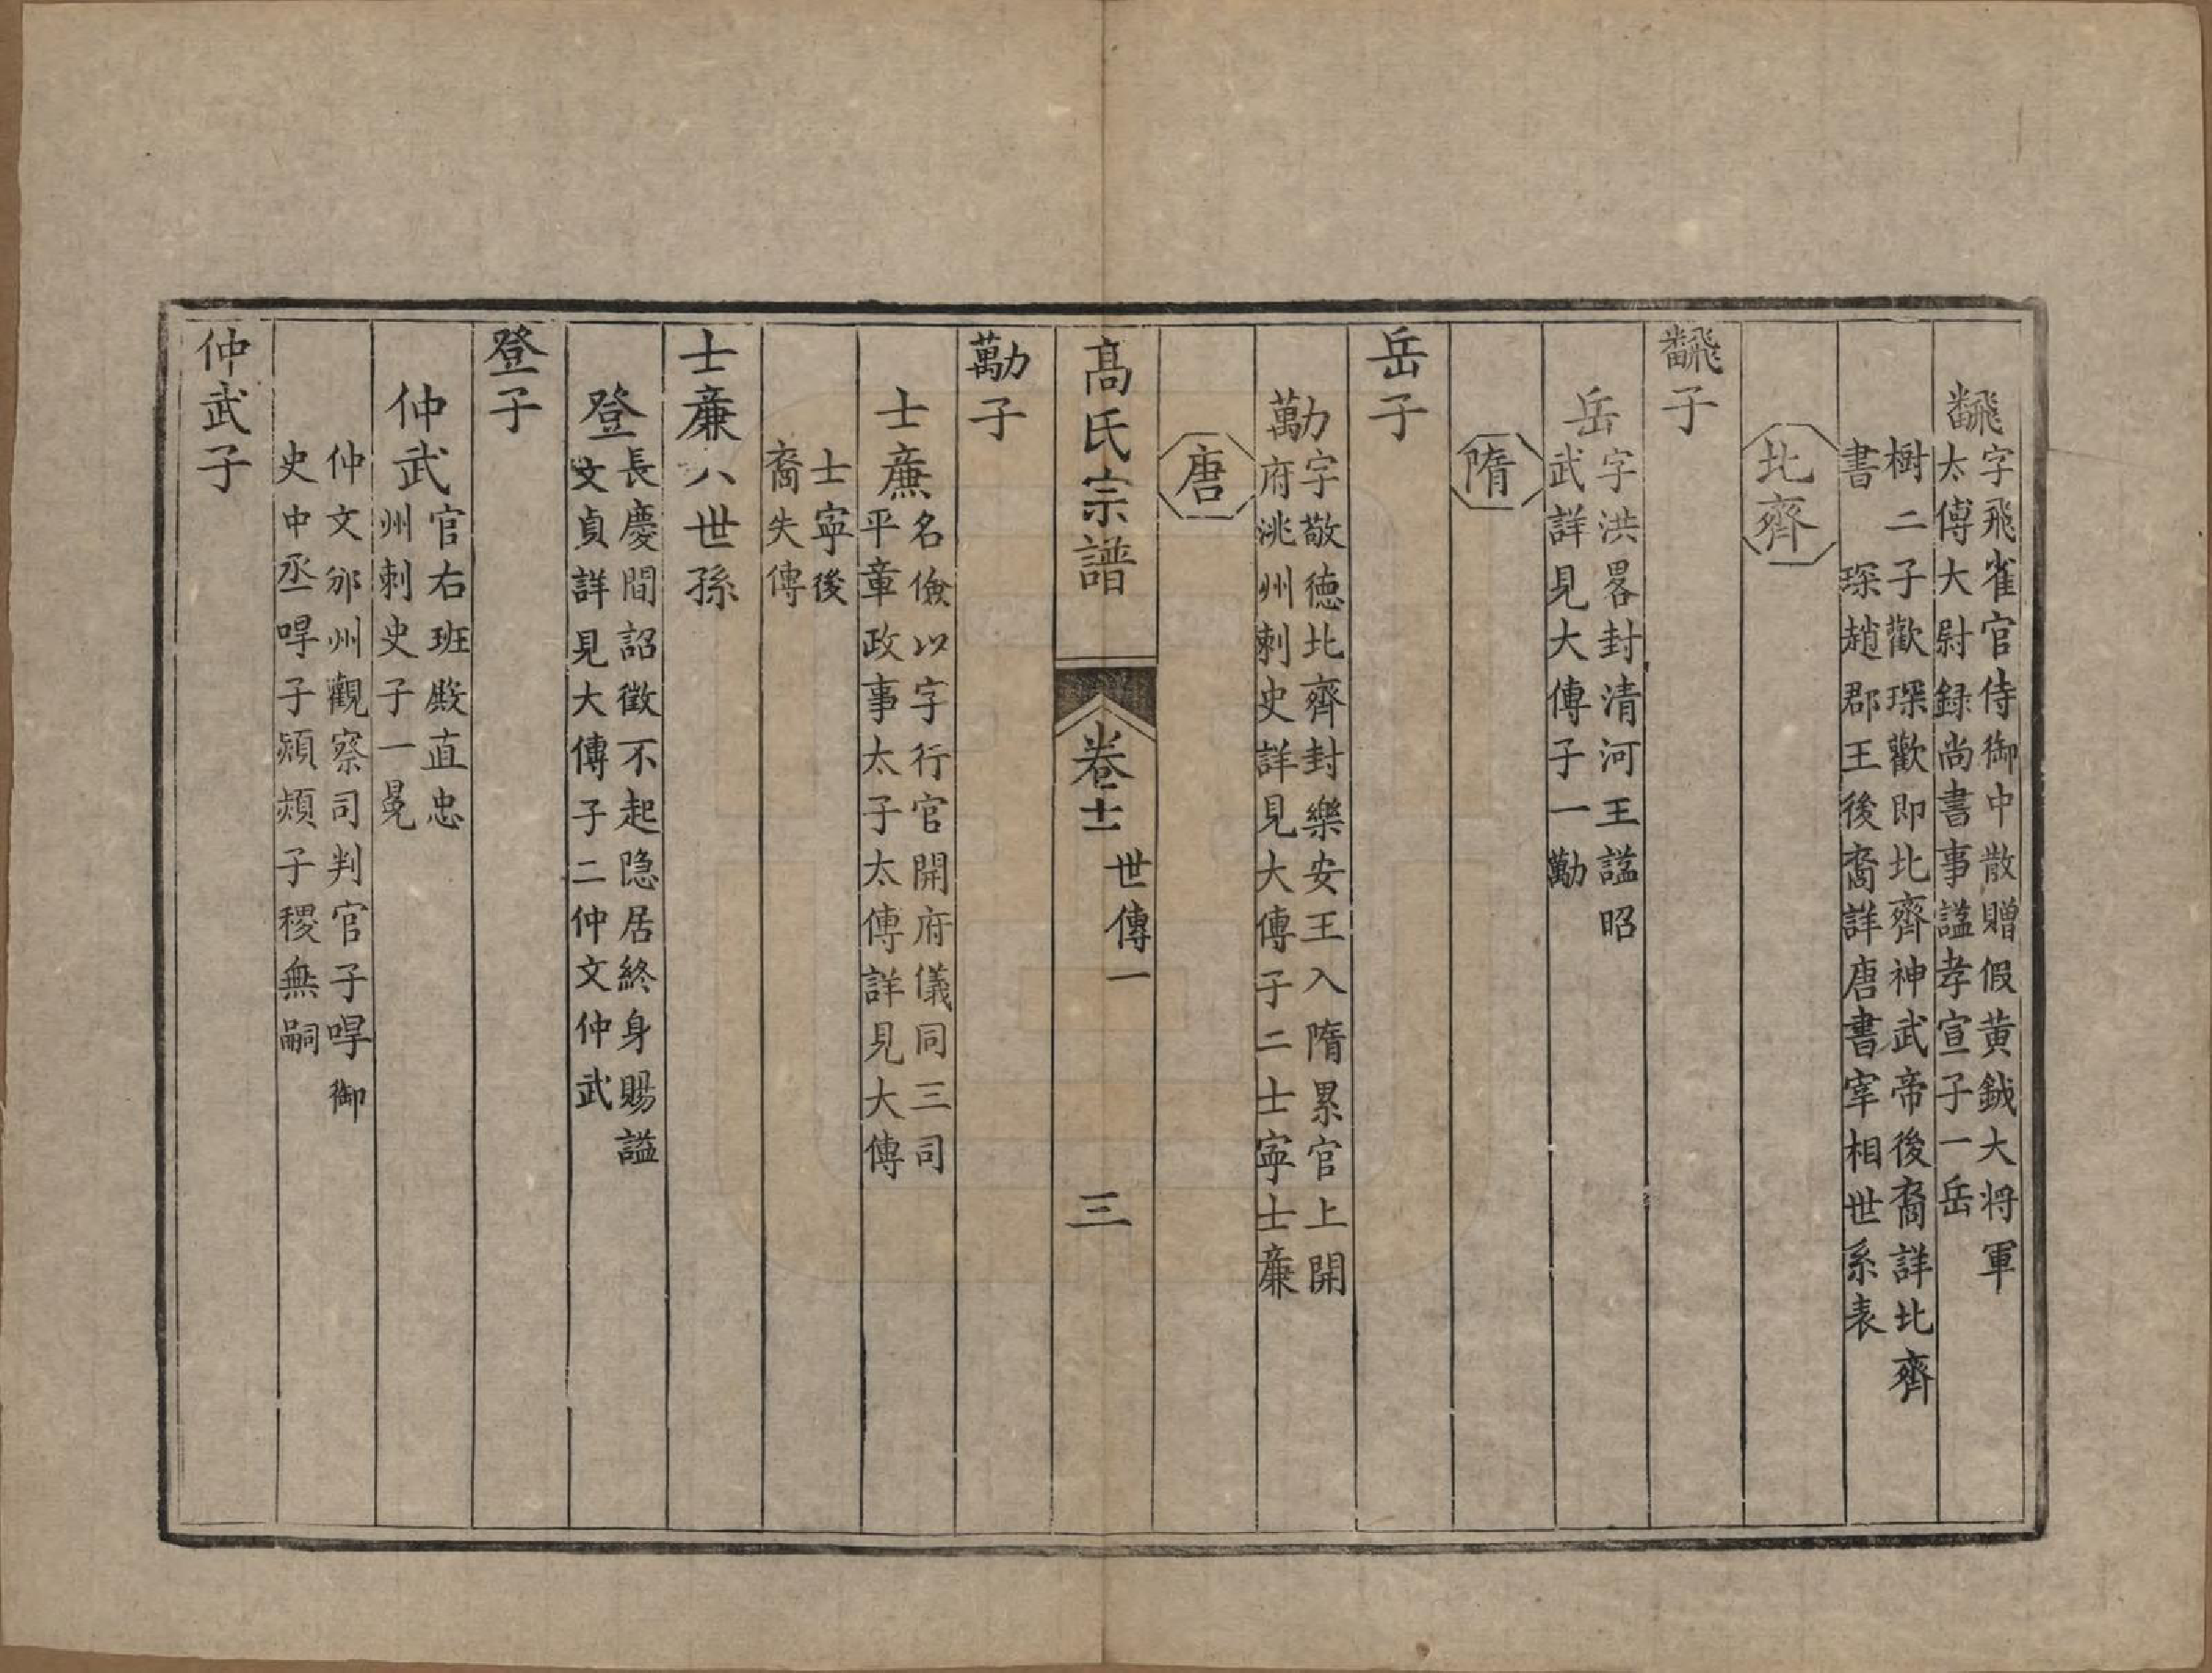 飜
字飛雀官侍御中散贈假黄鉞大将軍
太傅大尉録尚書事諡孝宣子一岳
樹二子歡琛歡即北齊神武帝後裔詳北齊
書　琛趙郡王後裔詳唐書宰相世系表
北齊
飜子
岳
字洪畧封清河王諡昭
武詳見大傳子一勱
隋
岳子
勱
字敬徳北齊封樂安王入隋累官上開
府洮州刺史詳見大傳子二士寧士亷
唐
髙氏宗譜
卷十一
世傳一
三
勱子
士亷
名儉以字行官開府儀同三司
平章政事太子太傅詳見大傳
士寧後
裔失傳
士亷八世孫
登
長慶間詔徵不起隐居終身賜謚
文貞詳見大傳子二仲文仲武
登子
仲武
官右班殿直忠
州刺史子一冕
仲文邠州觀察司判官子㖔御
史中丞㖔子熲熲子稷無嗣
仲武子